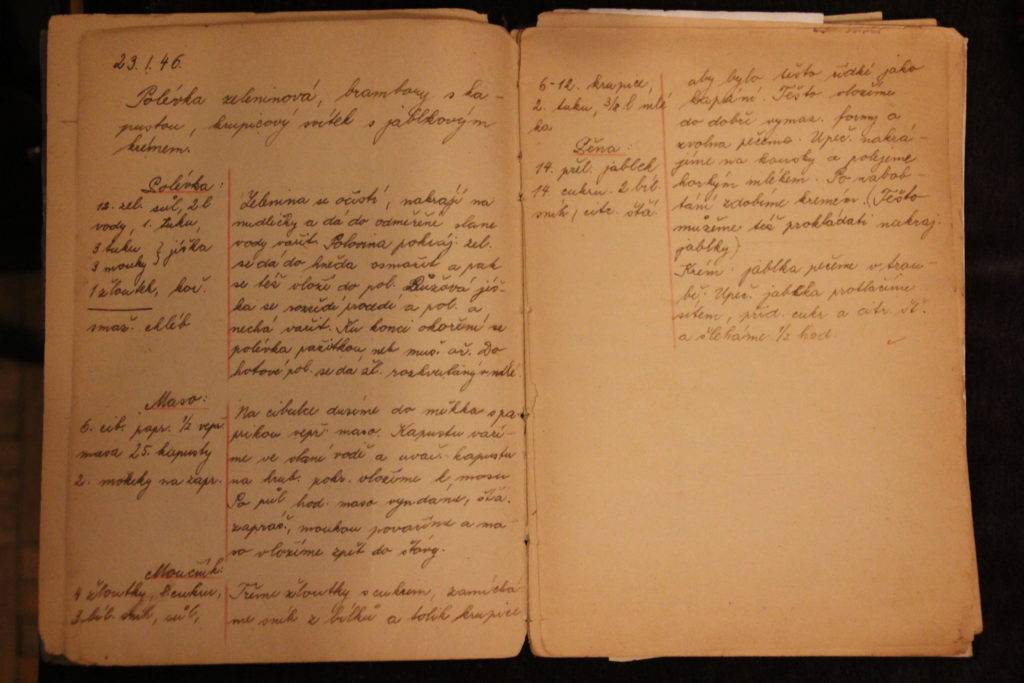 23.1.46.
Polévka zeleninová, brambory s ka-
pustou, krupicový svítek s jablkovým
krémem.
Polévka:
12. zel. sůl, 2 l
vody, 1. tuku,
3 tuku } jíška
3 mouky
1 žloutek, koř.
smaž. chléb
Zelenina se očistí, nakrájí na
nudličky a dá do odměřené slané
vody vařit. Polovina pokráj. zel.
se dá do hněda osmažit a pak
se též vloží do pol. Růžová jíš-
ka se rozředí procedí a pol. a
nechá vařit. Ku konci okoření se
polévka pažitkou neb muš. oř. Do
hotové pol. se dá žl. rozkvedlaný v mlé.
Maso:
6. cib. papr. 1/2 vepř.
masa 25. kapusty
2. mouky na zapr.
Na cibulce dusíme do měkka s pa-
prikou vepř. maso. Kapustu vaří-
me ve slané vodě a uvař. kapustu
na hrub. pokr. vložíme k masu
Po půl. hod. maso vyndáme, šťá.
zapráš. moukou povaříme a ma-
so vložíme zpět do šťávy.
Moučník:
4 žloutky, 8 cukru,
3 bíl. sníh, sůl,
Třeme žloutky s cukrem, zamíchá-
me sníh z bílků a tolik krupice
6-12. krupice,
2. tuku, 3/8 l mlé
ka
Pěna:
14. přel. jablek
14. cukru. 2 bíl.
sníh, citr. šťá.
aby bylo těsto řídké jako
kapání. Těsto vložíme
do dobře vymaz. formy a
zvolna pečeme. Upeč. nakrá-
jíme na kousky a polejeme
horkým mlékem. Po nabob-
tání zdobíme krémem. (Těsto
můžeme též prokládati nakráj.
jablky)
Krém: jablka pečeme v trou-
bě. Upeč. jablka protlačíme
sítem, přid. cukr a citr. šť.
a šleháme 1/2 hod.